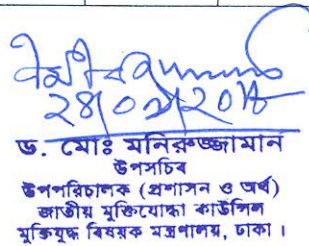 ড. মোঃ মনিরুজ্জামান
উপসচিব
উপপরিচালক (প্রশাসন ও অর্থ)
জাতীয় মুক্তিযোদ্ধা কাউন্সিল
মুক্তিযুদ্ধ বিষয়ক মন্ত্রণালয়, ঢাকা।